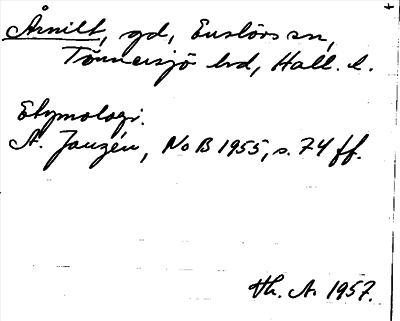 Årnilt, gd, Enslövs sn,
Tönnersjö hd, Hall. l.
Etymologi.
A. Janzén, NoB 1955, s. 74 ff.
Th. A. 1957.